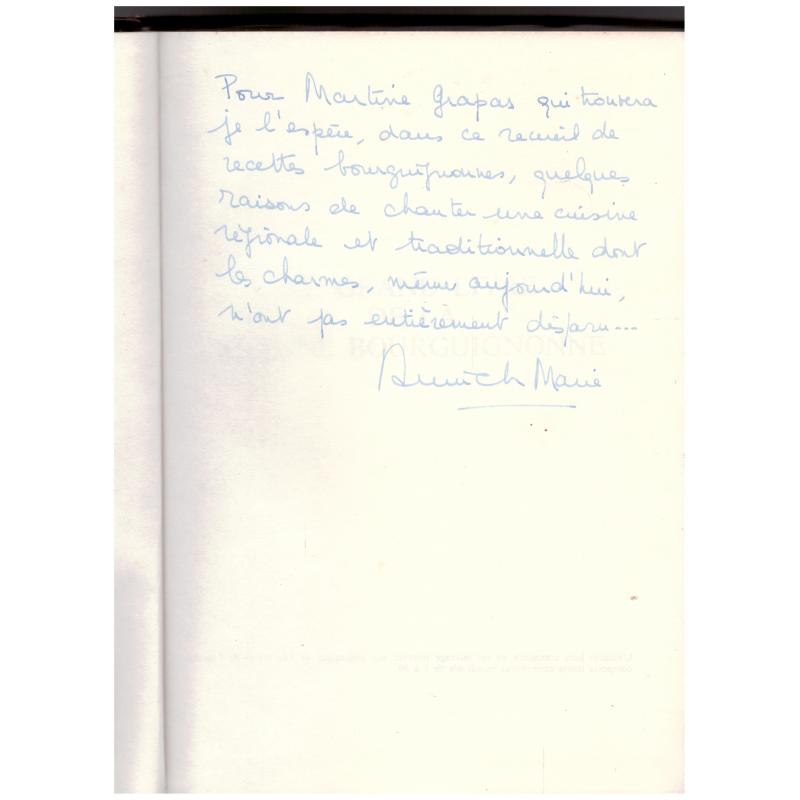 Pour Martine Grapas qui trouvera
je l'espère, dans ce recueil de
recettes bourguignonnes, quelques
raisons de chanter une cuisine
régionale et traditionnelle dont
les charmes, même aujourd'hui,
n'ont pas entièrement disparu...
Marie
BOURGUIGNONNE